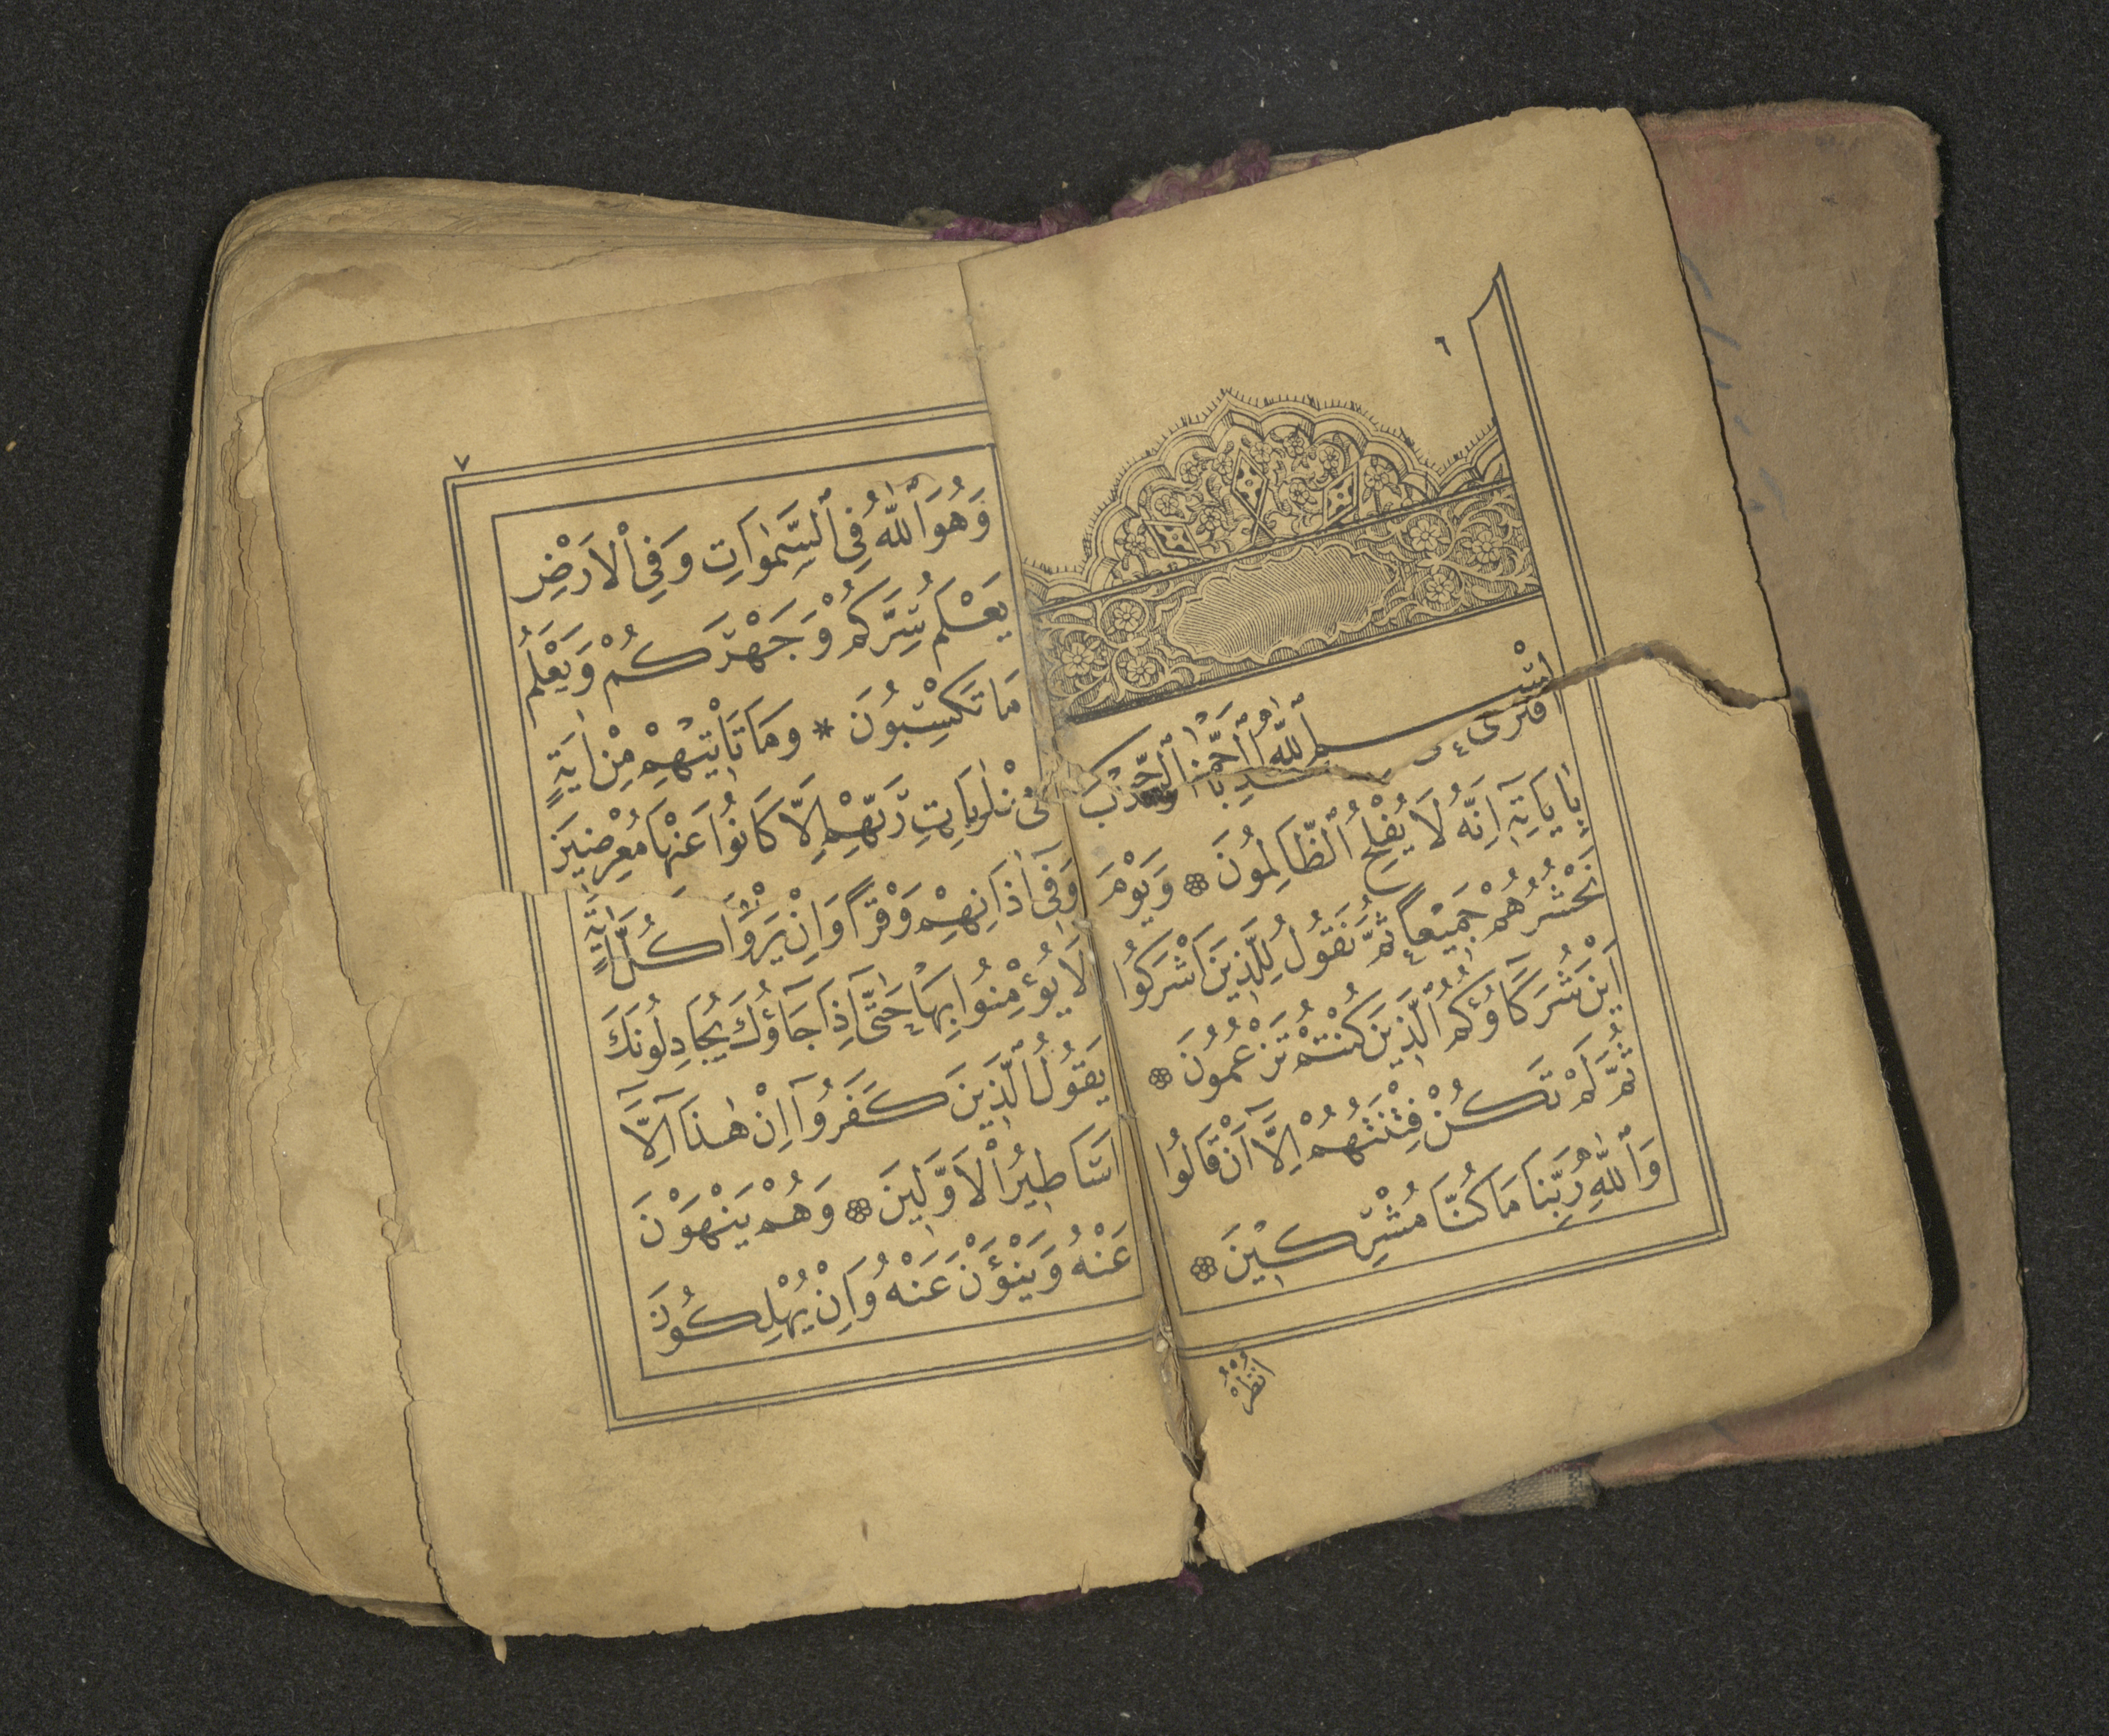 ٦
بِسْمِ ٱللّٰهِ ٱلرَّحْمٰنِ ٱلرَّحِيمِ
افْتَرٰى
بِاٰيَاتِهِٓ اِنَّهُ لَا يُفْلِحُ ٱلظَّالِمُونَ ۞ وَيَوْمَ
نَحْشُرُهُمْ جَمِيْعًا ثُمَّ نَقُولُ لِلَّذِينَ اَشْرَكُوٓا
اَيْنَ شُرَكَآؤُكُمُ ٱلَّذِينَ كُنْتُمْ تَزْعُمُونَ ۞
ثُمَّ لَمْ تَكُنْ فِتْنَتُهُمْ اِلَّآ اَنْ قَالُوا
وَٱللّٰهِ رَبِّنَا مَا كُنَّا مُشْرِكِيْنَ ۞
اُنْظُرْ
٧
وَهُوَ ٱللّٰهُ فِى ٱلسَّمٰوَاتِ وَفِى ٱلْاَرْضِ
يَعْلَمُ سِرَّكُمْ وَجَهْرَكُمْ وَيَعْلَمُ
مَا تَكْسِبُونَ * وَمَا تَاْتِيْهِمْ مِنْ اٰيَةٍ
رَبِّهِمْ اِلَّا كَانُوا عَنْهَا مُعْرِضِينَ
وَفِىٓ اٰذَانِهِمْ وَقْرًا وَاِنْ يَرَوْا كُلَّ اٰيَةٍ
لَا يُؤْمِنُوا بِهَا حَتّٰٓى اِذَا جَآؤُكَ يُجَادِلُونَكَ
يَقُولُ ٱلَّذِينَ كَفَرُوٓا اِنْ هٰذَآ اِلَّآ
اَسَاطِيرُ ٱلْاَوَّلِينَ ۞ وَهُمْ يَنْهَوْنَ
عَنْهُ وَيَنْؤَنَ عَنْهُ وَاِنْ يُهْلِكُونَ